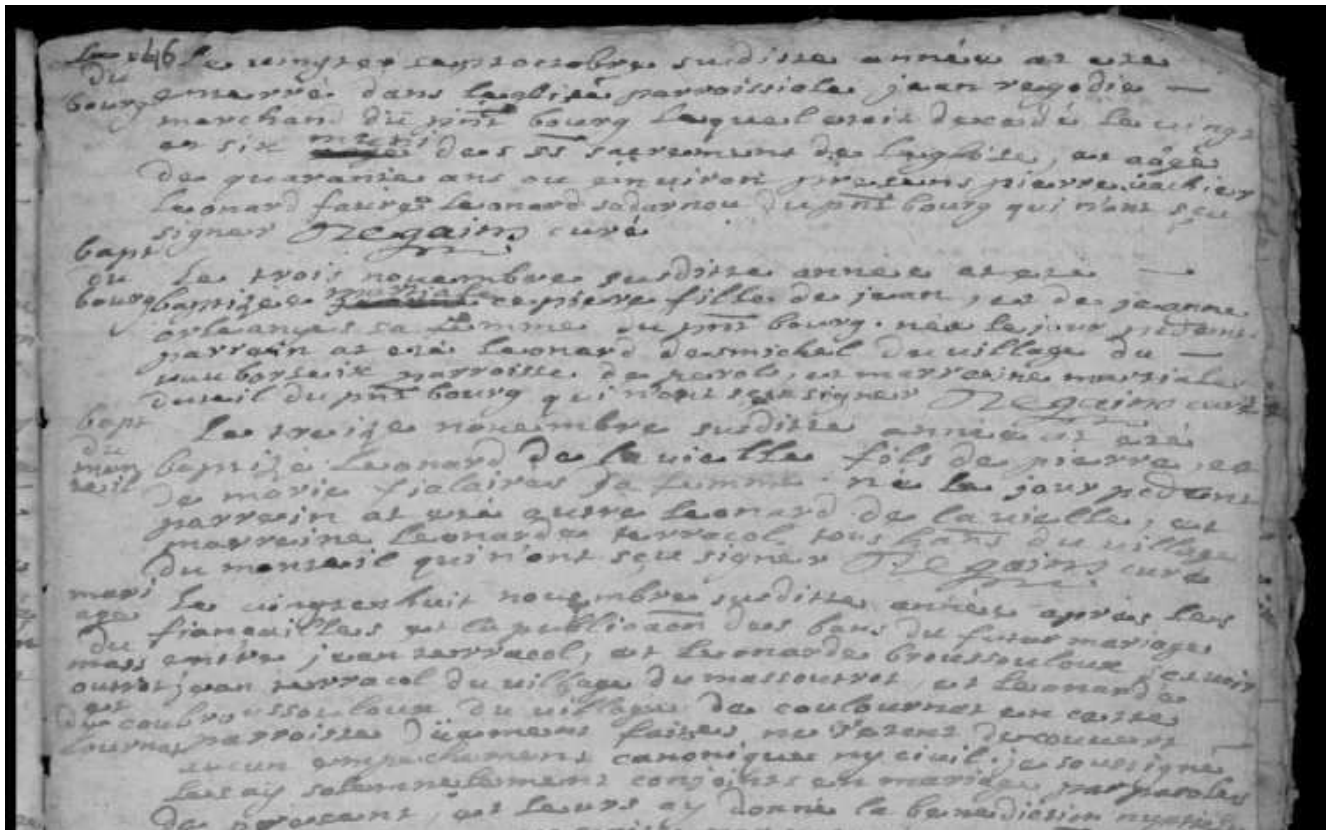 46 Le vingt et sept octobre susditte année at eté
du
bourg
enterré dans leglise parroissiale jean regodie
marchand du pnt bourg lequel etoit decedé le vingt
et six muni des sts sacremens de leglise, et aagé
de quarante ans ou environ presens pierre vachier
Leonard faurge Leonard sadarnou du pnt bourg qui n'ont sçu
signer Regains curé
bapt
du
bourg
Le trois novembre susditte année at eté
baptizée martiale cepiere fille de jean, et de jeanne
orleanges sa femme du pnt bourg. née le jour pcdent.
parrein at eté Leonard desmichel du village du
parroisse de perols, et marreine martiale
du pnt bourg qui n'ont sçu signer Regains curé
bapt
du
mon
teil
Le treize novembre susditte année at eté
baptizé Leonard de la vielle fils de pierre, et
de marie fialaires sa femme. né le jour pcdent
parrein at eté autre Leonard de la vielle, et
marreine Leonarde terracol tous habns du village
du monteil qui n'ont sçu signer Regains curé
mari
age
du
mass
outrot
et
du cou
lournat
Le vingt et huit novembre susditte année après les
fiançailles et la publicaon des bans du futur mariage
entre jean terracol, et Leonarde broussouloux, sçavoir
jean terracol du village du massoutrot, et Leonarde
broussouloux du village de coulournat en cette
parroisse düement faites, ne s'etent decouvert
aucun empechement canonique ny civil. je soussigné
les ay solemnelement conjoints en mariage par paroles
de present, et leurs ay donné la benediction nuptiale